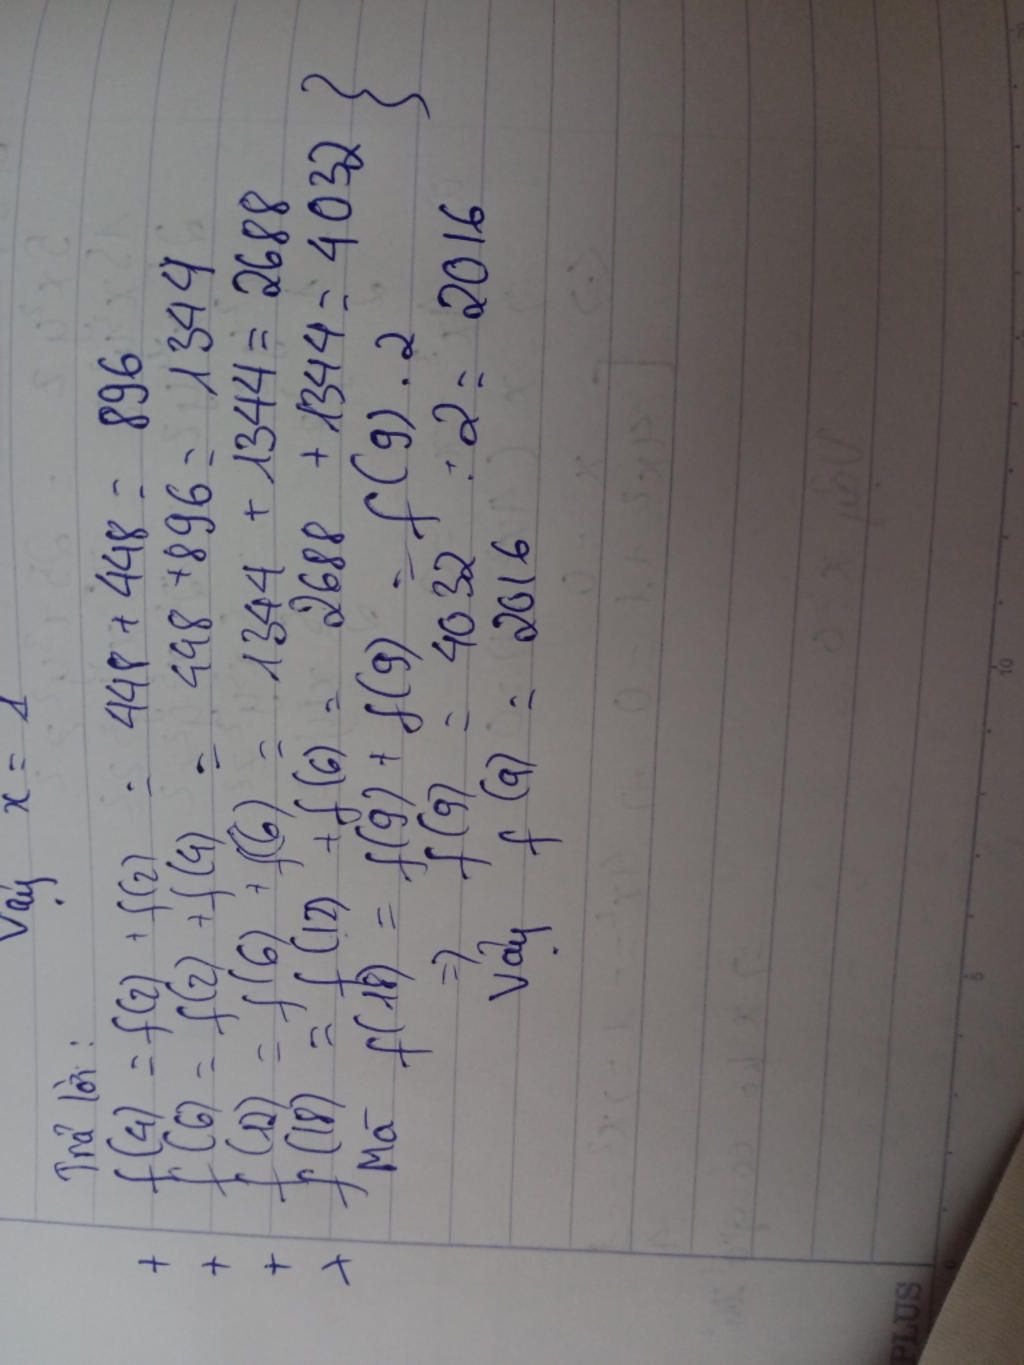 Vậy x = 1
Trả lời :
+ f(4) = f(2) + f(2) = 448 + 448 = 896
+ f(6) = f(2) + f(4) = 448 + 896 = 1344
+ f(12) = f(6) + f(6) = 1344 + 1344 = 2688
+ f(18) = f(12) + f(6) = 2688 + 1344 = 4032 }
Mà f(18) = f(9) + f(9) = f(9) . 2
=> f(9) = 4032 : 2 = 2016
Vậy f(9) = 2016
PLUS
5
10